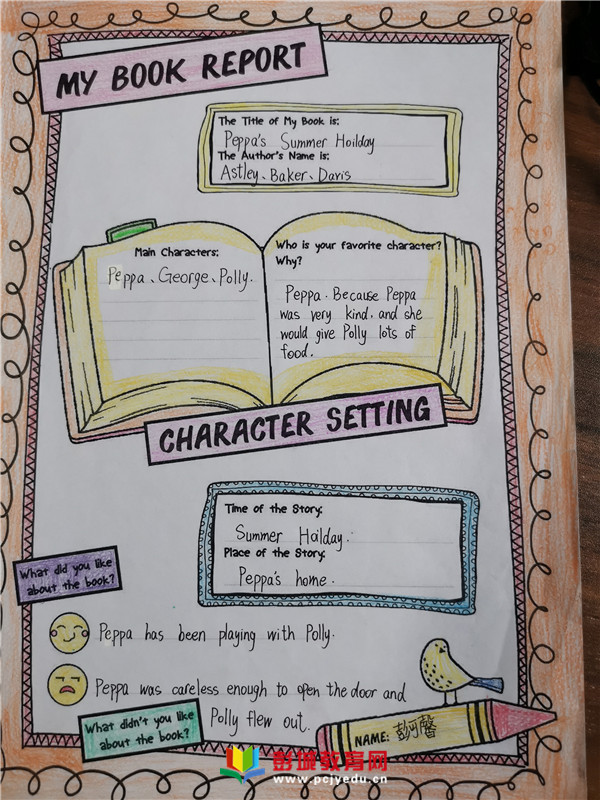 MY BOOK REPORT
The Title of My Book is:
Peppa's Summer Hoilday
The Author's Name is:
Astley、Baker、Davis
Main Characters:
Peppa、George、Polly.
Who is your favorite character?
Why?
Peppa. Because Peppa
was very kind. and she
would give Polly lots of
food.
CHARACTER SETTING
Time of the Story:
Summer Hoilday.
Place of the Story:
Peppa's home.
What did you like
about the book?
Peppa has been playing with Polly.
Peppa was careless enough to open the door and
Polly flew out.
What didn't you like
about the book?
NAME: 彭可馨
彭城教育网
www.pcjyedu.cn